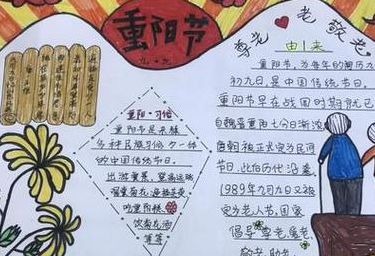 重阳节
九·九
尊老 敬老
由来
重阳节,为每年的阴历九月
初九日,是中国传统节日。
重阳节早在战国时期就已
自魏晋重阳气氛日渐浓
唐朝被正式定为民间
节日,此后历代沿袭
1989年9月9日又被
定为老人节,国家
倡导尊老、爱老
敬老、助老。
重阳·习俗
重阳节是杂糅
多种民俗习俗为一体
的中国传统节日。
出游赏景、登高远眺
观赏菊花、遍插茱萸
吃重阳糕、
饮菊花酒
等等